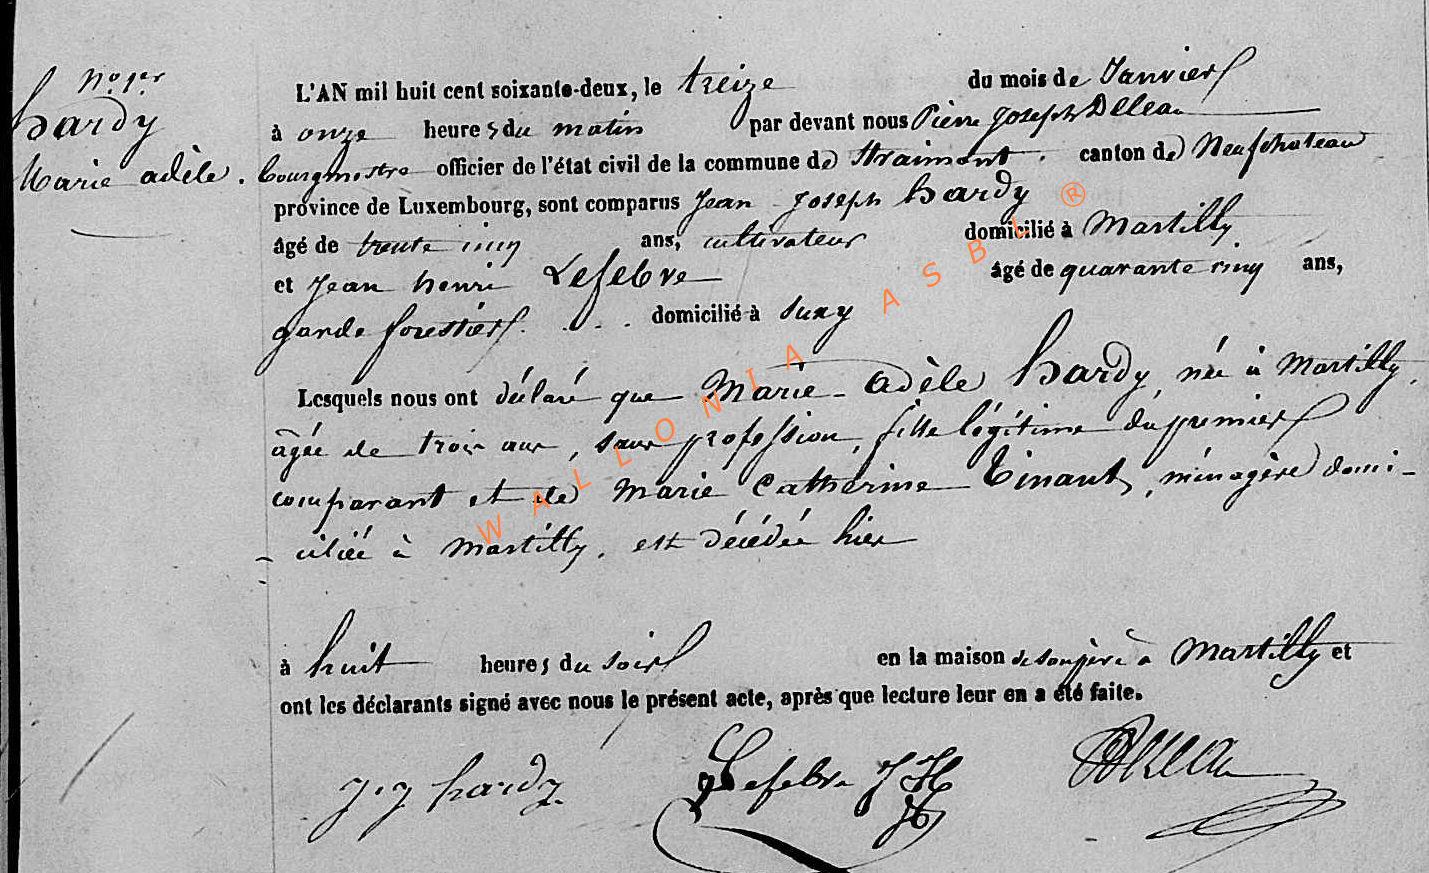 No 1er
hardy
Marie adèle.
L'AN mil huit cent soixante-deux, le treize du mois de Janvier
à onze heures du matin par devant nous Pierre Joseph Delleau
bourgmestre officier de l'état civil de la commune de Straimont. canton de Neufchateau
province de Luxembourg, sont comparus Jean Joseph hardy
âgé de trente cinq ans, cultivateur domicilié à Martilly
et Jean henri Lefebvre âgé de quarante cinq ans,
garde forestier. domicilié à Suxy
Lesquels nous ont déclaré que Marie adèle hardy, née à Martilly,
âgée de trois ans, sans profession, fille légitime du premier
comparant et de Marie Catherine Tinant, ménagère domi-
-ciliée à Martilly. est décédée hier
à huit heures du soir en la maison de son père à Martilly et
ont les déclarants signé avec nous le présent acte, après que lecture leur en a été faite.
J. J hardy. Lefebvre J H
WALLONIA ASBL ®